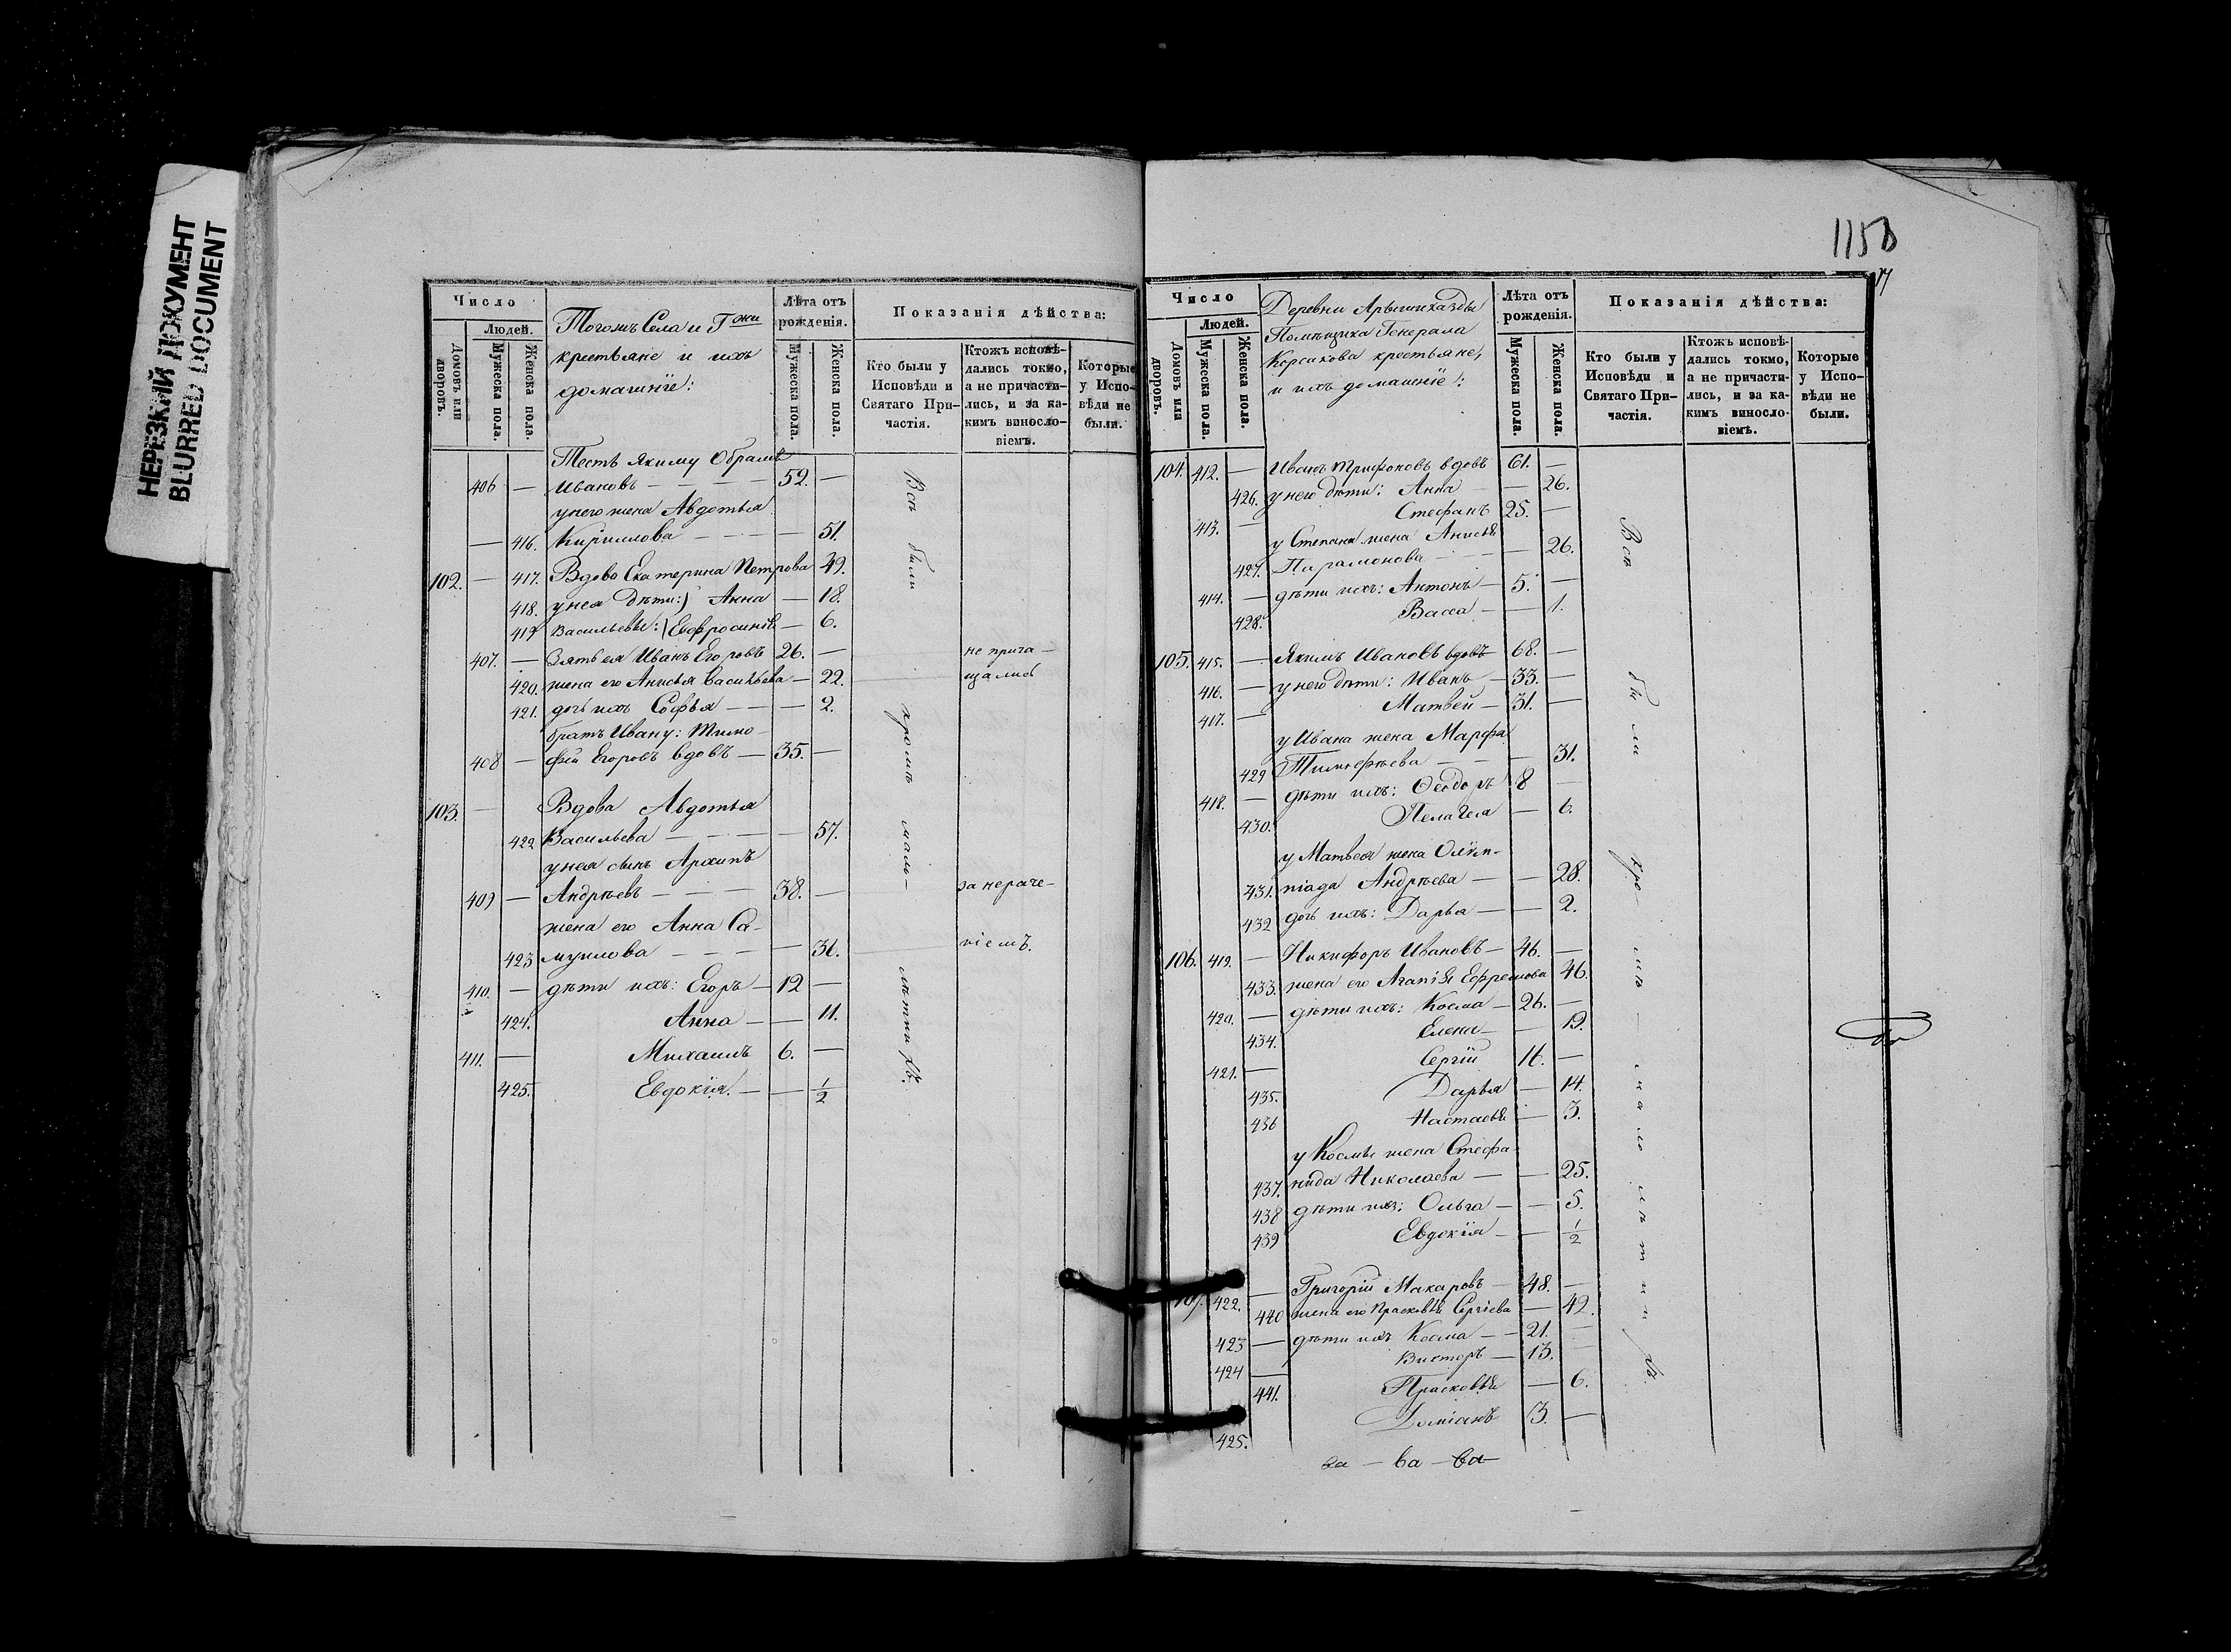 НЕРЕЗКИЙ ДОКУМЕНТ
BLURRED DOCUMENT
Число
Людей.
Домовъ или дворовъ.
Мужеска пола.
Женска пола.
Тогожъ Села и Гжи
крестьяне и ихъ
домашніе:
Лѣта отъ рожденія.
Мужеска пола.
Женска пола.
Показанія дѣйства:
Кто были у Исповѣди и Святаго Причастія.
Ктожъ исповѣдались токмо, а не причастились, и за какимъ винословіемъ.
Которые у Исповѣди не были.
Тесть Якиму
406 — Ивановъ — 52. —
у него жена Авдотья
— 416. Кириллова — — 51.
102. — 417. Вдова Екатерина Петрова 49.
418. у нея дѣти: Анна — 18.
419 Васильевы: Евфросинія — 6.
407. — Зять ея Иванъ Егоровъ 26. — не прича-
420. жена его Анисья Васильева — 22. щались
421. дочь ихъ Софья — — 2.
братъ Ивану: Тимо-
408 — фей Егоровъ вдовъ — 35. —
103. — Вдова Авдотья
422 Васильева — — 57.
у нея сынъ Архипъ
409 — Андреевъ — 38. — за нераче-
жена его Анна Са-
423 муилова — — 36. ніемъ.
410. — дѣти ихъ: Егоръ — 12 —
424. Анна — — 11.
411. — Михаилъ 6. —
425. Евдокія. — — 1/2
Всѣ были кромѣ мало- лѣтнихъ.
1150
Число
Людей.
Домовъ или дворовъ.
Мужеска пола.
Женска пола.
Деревни
Помѣщика Генерала
Корсакова крестьяне,
и ихъ домашніе:
Лѣта отъ рожденія.
Мужеска пола.
Женска пола.
Показанія дѣйства:
Кто были у Исповѣди и Святаго Причастія.
Ктожъ исповѣдались токмо, а не причастились, и за какимъ винословіемъ.
Которые у Исповѣди не были.
104. 412. — Иванъ Трифоновъ вдовъ 61. —
426. у него дѣти: Анна — 26.
413. — Стефанъ 25. —
у Степана жена Анисья
427. Парамонова — — 26.
414. — дѣти ихъ: Антонъ — 5. —
428. Васса — — 1.
105. 415. — Якимъ Ивановъ вдовъ 68. —
416. — у него дѣти: Иванъ — 33. —
417. — Матвей — 31. —
у Ивана жена Марфа
429 Тимофѣева — — 31.
418. — дѣти ихъ: Ѳеодоръ 8 —
430. Пелагея — 6.
у Матвея жена Олим-
431. піада Андрѣева — — 28.
432 дочь ихъ: Дарья — — 2.
106. 419. — Никифоръ Ивановъ — 46. —
433. жена его Агапія Ефремова 46.
420. — дѣти ихъ: Косма — 26. —
434. Елена — — 19.
421. — Сергій 16. —
435. Дарья — 14.
436 Настасья — 3.
у Космы жена Стефа-
437. нида Николаева — — 25.
438 дѣти ихъ: Ольга — — 5.
439 Евдокія — — 1/2
107. 422. — Григорій Макаровъ — 48. —
440 жена его Прасковья Сергіева — 49.
423 — дѣти ихъ Косма — 21. —
424 — Викторъ — 13. —
441. Прасковья — 6.
425. Даміанъ 3. —
Всѣ были кро- мѣ — малолѣтнихъ.